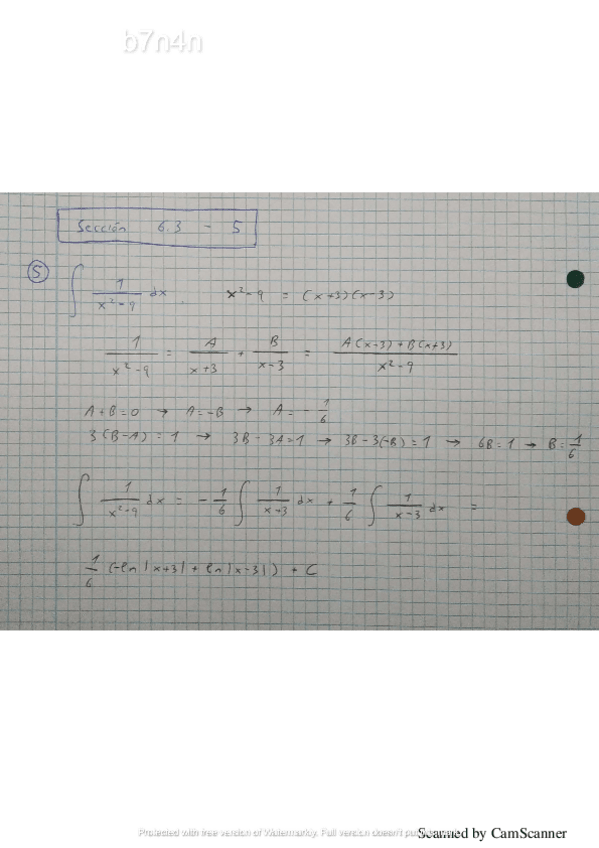 b7n4n
Sección 6.3 - 5
5
∫ 1/(x²-9) dx . x²-9 = (x+3)(x-3)
1/(x²-9) = A/(x+3) + B/(x-3) = (A(x-3) + B(x+3))/(x²-9)
A+B=0 → A=-B → A = -1/6
3(B-A) = 1 → 3B-3A=1 → 3B-3(-B)=1 → 6B=1 → B=1/6
∫ 1/(x²-9) dx = -1/6 ∫ 1/(x+3) dx + 1/6 ∫ 1/(x-3) dx =
1/6 (-ln|x+3| + ln|x-3|) + C
Protected with free version of Watermarkly. Full version doesn't put
Scanned by CamScanner